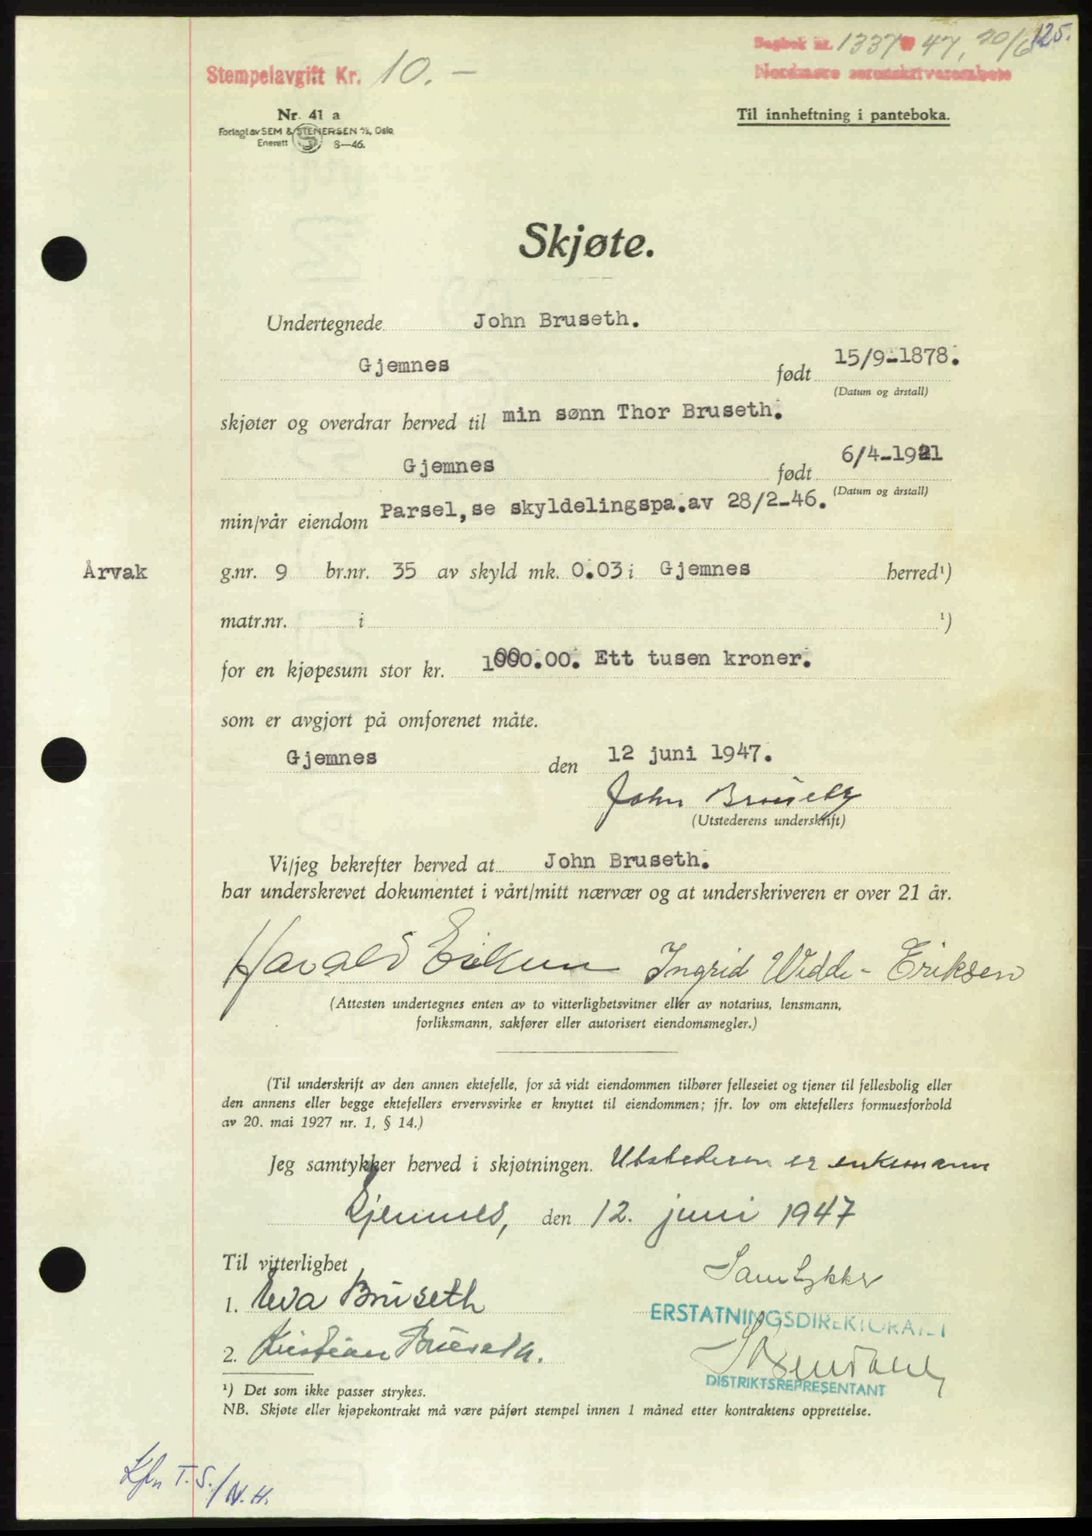 125.
Dagbok nr. 1337 47, 20/6
Stempelavgift Kr. 10.-
Nordmøre sorenskriverembete
Nr. 41 a
Forlagt av SEM & STENERSEN A/S, Oslo
Enerett 8—46.
Til innheftning i panteboka.
Skjøte.
Undertegnede John Bruseth.
Gjemnes født 15/9-1878.
(Datum og årstall)
skjøter og overdrar herved til min sønn Thor Bruseth.
Gjemnes født 6/4-1921
(Datum og årstall)
min/vår eiendom Parsel, se skyldelingspa.av 28/2-46.
Årvak g.nr. 9 br.nr. 35 av skyld mk. 0.03 i Gjemnes herred¹)
matr.nr. i ¹)
for en kjøpesum stor kr. 1000.00. Ett tusen kroner.
som er avgjort på omforenet måte.
Gjemnes den 12 juni 1947.
John Bruseth
(Utstederens underskrift)
Vi/jeg bekrefter herved at John Bruseth.
har underskrevet dokumentet i vårt/mitt nærvær og at underskriveren er over 21 år.
Harald Ingrid Widde-Eriksen
(Attesten undertegnes enten av to vitterlighetsvitner eller av notarius, lensmann,
forliksmann, sakfører eller autorisert eiendomsmegler.)
(Til underskrift av den annen ektefelle, for så vidt eiendommen tilhører felleseiet og tjener til fellesbolig eller
den annens eller begge ektefellers ervervsvirke er knyttet til eiendommen; jfr. lov om ektefellers formuesforhold
av 20. mai 1927 nr. 1, § 14.)
Jeg samtykker herved i skjøtningen. Utstederen er enkemann
Gjemnes, den 12. juni 1947
Til vitterlighet
Samtykker
1. Eva Bruseth
ERSTATNINGSDIREKTORATET
2. Kristian Bruseth.
DISTRIKTSREPRESENTANT
¹) Det som ikke passer strykes.
NB. Skjøte eller kjøpekontrakt må være påført stempel innen 1 måned etter kontraktens opprettelse.
T.S./N.H.